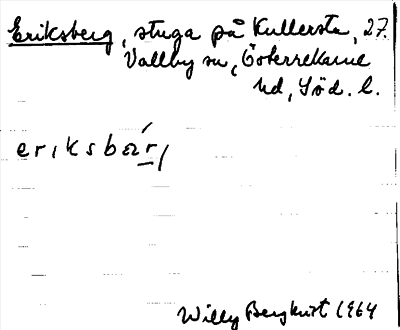 Eriksberg, stuga på Kullersta, 27.
Vallby sn, Österrekarne
hd, Söd. l.
eriksbár,
Willy Bergkvist 1964